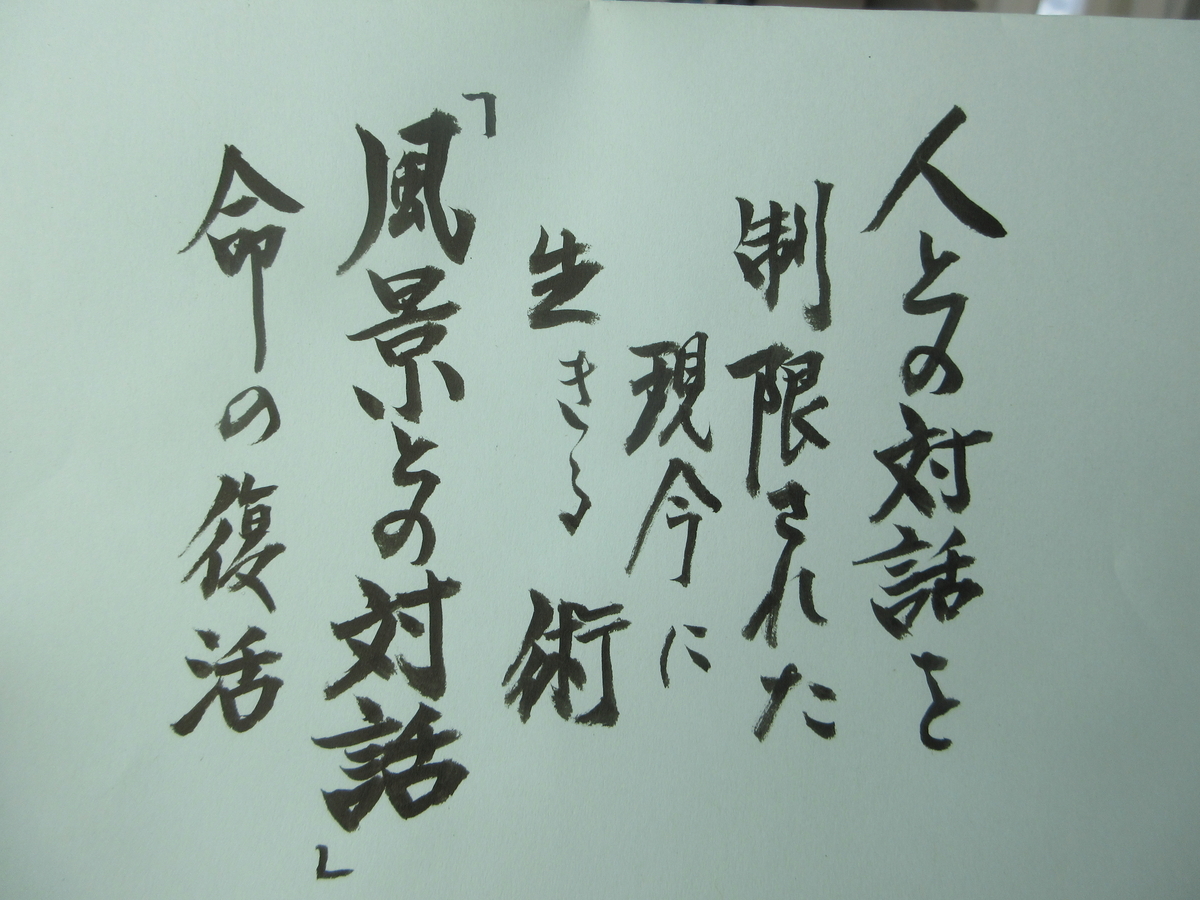 人との対話を
制限された
現今に
生きる 術
「風景との対話」
命の復活